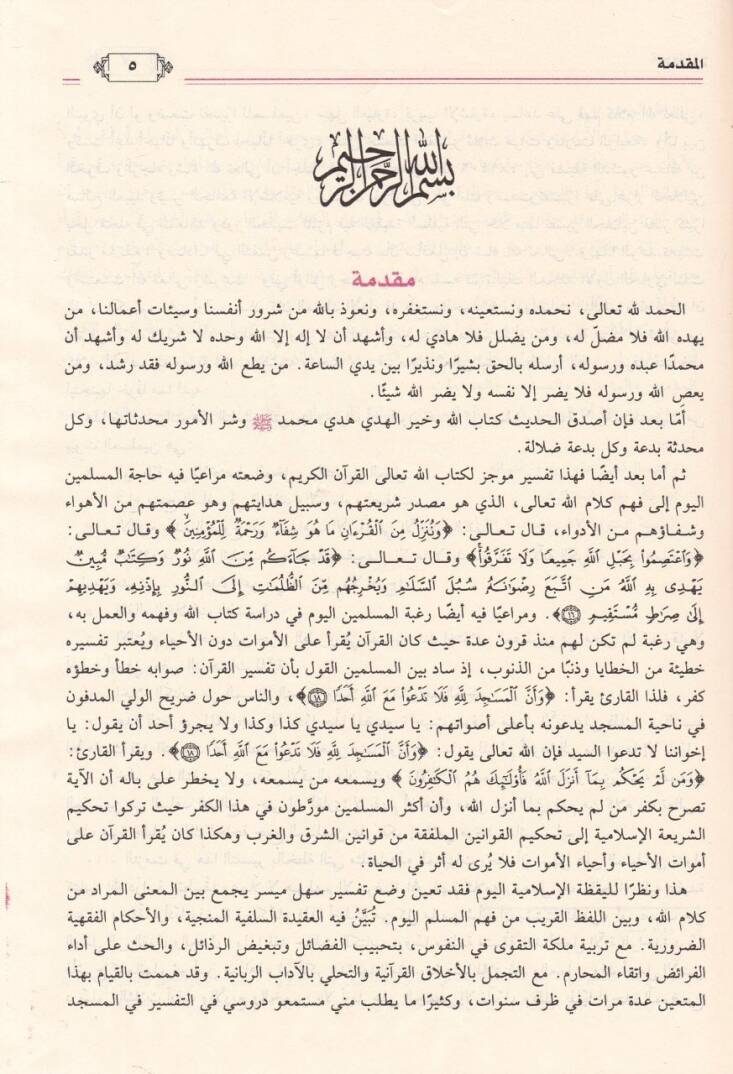 المقدمة
٥
بسم الله الرحمن الرحيم
مقدمة
الحمد لله تعالى، نحمده ونستعينه، ونستغفره، ونعوذ بالله من شرور أنفسنا وسيئات أعمالنا، من
يهده الله فلا مضلّ له، ومن يضلل فلا هادي له، وأشهد أن لا إله إلا الله وحده لا شريك له وأشهد أن
محمدًا عبده ورسوله، أرسله بالحق بشيرًا ونذيرًا بين يدي الساعة. من يطع الله ورسوله فقد رشد، ومن
يعص الله ورسوله فلا يضر إلا نفسه ولا يضر الله شيئًا.
أمّا بعد فإن أصدق الحديث كتاب الله وخير الهدي هدي محمد ﷺ وشر الأمور محدثاتها، وكل
محدثة بدعة وكل بدعة ضلالة.
ثم أما بعد أيضًا فهذا تفسير موجز لكتاب الله تعالى القرآن الكريم، وضعته مراعيًا فيه حاجة المسلمين
اليوم إلى فهم كلام الله تعالى، الذي هو مصدر شريعتهم، وسبيل هدايتهم وهو عصمتهم من الأهواء
وشفاؤهم من الأدواء، قال تعالى: ﴿وَنُنَزِّلُ مِنَ الْقُرْءَانِ مَا هُوَ شِفَآءٌ وَرَحْمَةٌ لِّلْمُؤْمِنِينَ﴾ وقال تعالى:
﴿وَاعْتَصِمُوا۟ بِحَبْلِ اللَّهِ جَمِيعًا وَلَا تَفَرَّقُوا۟﴾ وقال تعالى: ﴿قَدْ جَآءَكُم مِّنَ اللَّهِ نُورٌ وَكِتَٰبٌ مُّبِينٌ
يَهْدِى بِهِ اللَّهُ مَنِ اتَّبَعَ رِضْوَٰنَهُۥ سُبُلَ السَّلَٰمِ وَيُخْرِجُهُم مِّنَ الظُّلُمَٰتِ إِلَى النُّورِ بِإِذْنِهِۦ وَيَهْدِيهِمْ
إِلَىٰ صِرَٰطٍ مُّسْتَقِيمٍ ١٦﴾. ومراعيًا فيه أيضًا رغبة المسلمين اليوم في دراسة كتاب الله وفهمه والعمل به،
وهي رغبة لم تكن لهم منذ قرون عدة حيث كان القرآن يُقرأ على الأموات دون الأحياء ويُعتبر تفسيره
خطيئة من الخطايا وذنبًا من الذنوب، إذ ساد بين المسلمين القول بأن تفسير القرآن: صوابه خطأ وخطؤه
كفر، فلذا القارئ يقرأ: ﴿وَأَنَّ الْمَسَٰجِدَ لِلَّهِ فَلَا تَدْعُوا۟ مَعَ اللَّهِ أَحَدًا ١٨﴾، والناس حول ضريح الولي المدفون
في ناحية المسجد يدعونه بأعلى أصواتهم: يا سيدي يا سيدي كذا وكذا ولا يجرؤ أحد أن يقول: يا
إخواننا لا تدعوا السيد فإن الله تعالى يقول: ﴿وَأَنَّ الْمَسَٰجِدَ لِلَّهِ فَلَا تَدْعُوا۟ مَعَ اللَّهِ أَحَدًا ١٨﴾. ويقرأ القارئ:
﴿وَمَن لَّمْ يَحْكُم بِمَآ أَنزَلَ اللَّهُ فَأُو۟لَٰٓئِكَ هُمُ الْكَٰفِرُونَ﴾ ويسمعه من يسمعه، ولا يخطر على باله أن الآية
تصرح بكفر من لم يحكم بما أنزل الله، وأن أكثر المسلمين مورَّطون في هذا الكفر حيث تركوا تحكيم
الشريعة الإسلامية إلى تحكيم القوانين الملفقة من قوانين الشرق والغرب وهكذا كان يُقرأ القرآن على
أموات الأحياء وأحياء الأموات فلا يُرى له أثر في الحياة.
هذا ونظرًا لليقظة الإسلامية اليوم فقد تعين وضع تفسير سهل ميسر يجمع بين المعنى المراد من
كلام الله، وبين اللفظ القريب من فهم المسلم اليوم. تُبَيَّنُ فيه العقيدة السلفية المنجية، والأحكام الفقهية
الضرورية. مع تربية ملكة التقوى في النفوس، بتحبيب الفضائل وتبغيض الرذائل، والحث على أداء
الفرائض واتقاء المحارم. مع التجمل بالأخلاق القرآنية والتحلي بالآداب الربانية. وقد هممت بالقيام بهذا
المتعين عدة مرات في ظرف سنوات، وكثيرًا ما يطلب مني مستمعو دروسي في التفسير في المسجد